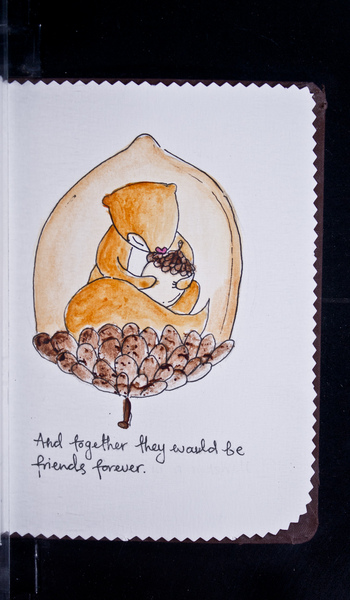 And together they would be
friends forever.